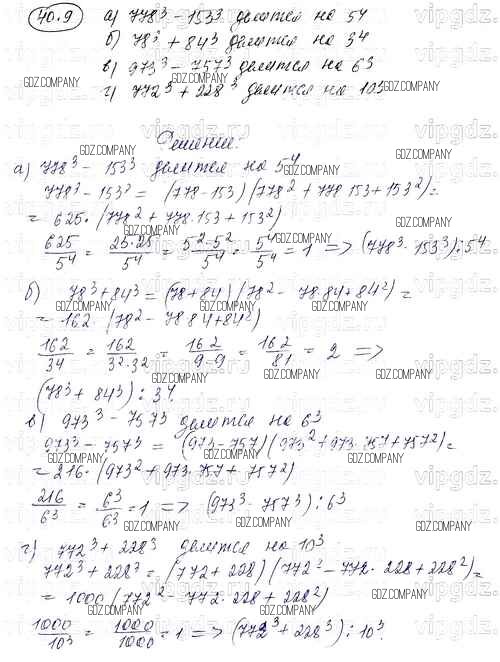 40.9 а) 778³ - 153³ делится на 5⁴
б) 78³ + 84³ делится на 3⁴
в) 973³ - 757³ делится на 6³
г) 772³ + 228³ делится на 10³
Решение:
а) 778³ - 153³ делится на 5⁴
778³ - 153³ = (778-153)(778² + 778·153 + 153²) =
= 625·(778² + 778·153 + 153²)
625/5⁴ = 25·25/5⁴ = 5²·5²/5⁴ = 5⁴/5⁴ = 1 => (778³ - 153³) ⋮ 5⁴
б) 78³ + 84³ = (78+84)(78² - 78·84 + 84²) =
= 162·(78² - 78·84 + 84²)
162/3⁴ = 162/3²·3² = 162/9·9 = 162/81 = 2 =>
(78³ + 84³) ⋮ 3⁴.
в) 973³ - 757³ делится на 6³
973³ - 757³ = (973-757)(973² + 973·757 + 757²) =
= 216·(973² + 973·757 + 757²)
216/6³ = 6³/6³ = 1 => (973³ - 757³) ⋮ 6³
г) 772³ + 228³ делится на 10³
772³ + 228³ = (772 + 228)(772² - 772·228 + 228²) =
= 1000·(772² - 772·228 + 228²)
1000/10³ = 1000/1000 = 1 => (772³ + 228³) ⋮ 10³.
GDZ.COMPANY
vipgdz.ru